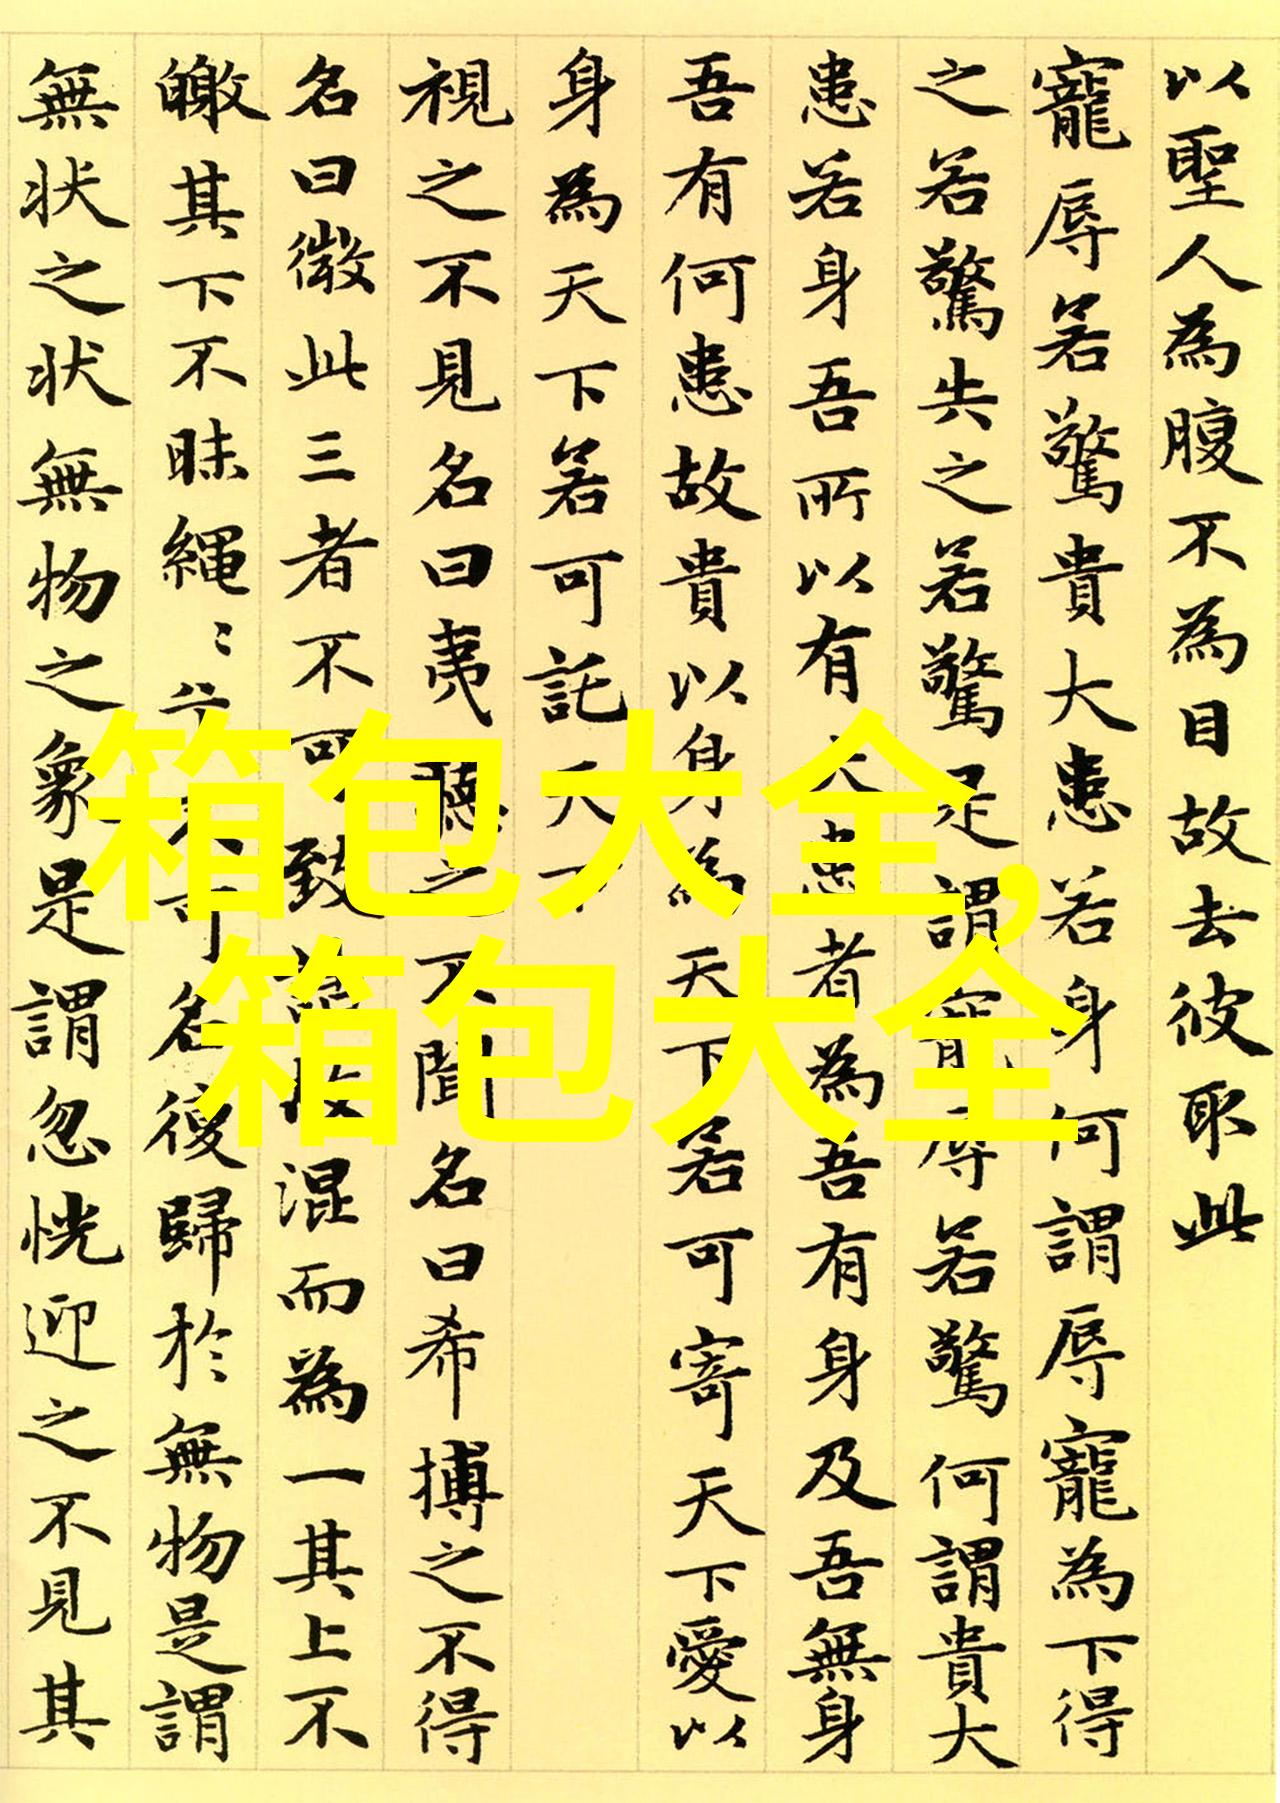 以聖人為腹不為目故去彼取此
寵辱若驚貴大患若身何謂辱寵為下得
之若驚失之若驚是謂寵辱若驚何謂貴大
患若身吾所以有大患者為吾有身及吾無身
吾有何患故貴以身為天下若可寄天下愛以
身為天下若可託天下
視之不見名曰夷聽之不聞名曰希搏之不得
名曰微此三者不可致詰故混而為一其上不
皦其下不昧繩〻兮不可名復歸於無物是謂
無状之状無物之象是謂忽恍迎之不見其
箱包大全,
箱包大全